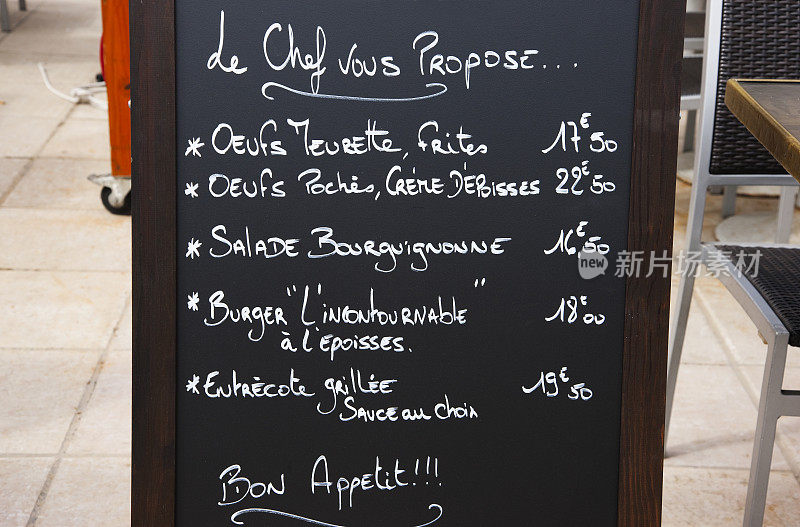 Le Chef vous Propose...
* Oeufs Meurette, frites 17€50
* Oeufs Pochés, Crème D'Epoisses 22€50
* Salade Bourguignonne 16€50
* Burger "L'incontournable" 18€00
à l'epoisses.
* Entrecôte grillée 19€50
Sauce au choix
Bon Appetit!!!
new 新片场